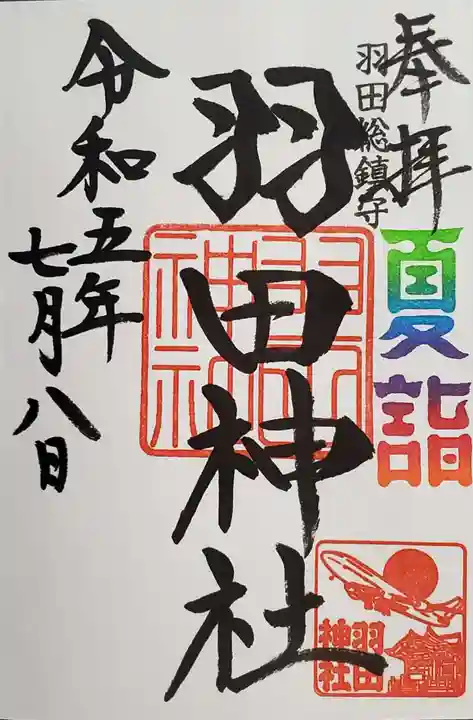 奉拝
羽田総鎮守
夏詣
羽田神社
羽田神社
令和五年
七月八日
羽田
神社